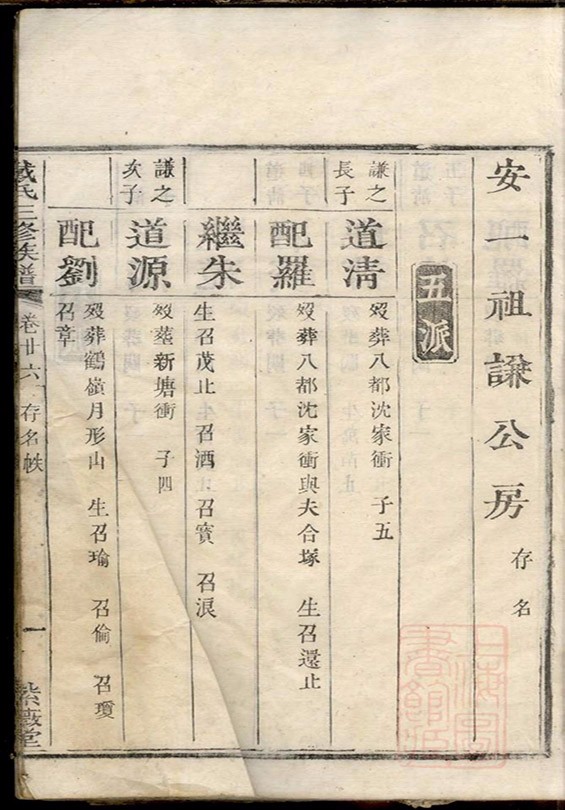 安一祖謙公房 存名
五派
謙之長子
道清 歿葬八都沈家衝 子五
配羅 歿葬八都沈家衝與夫合塚 生召還止
繼朱 生召茂止 生召酒止 召賓 召浪
謙之次子
道源 歿葬新塘衝 子四
配劉 歿葬鶴嶺月形山 生召瑜 召倫 召瓊
召章
戴氏三修族譜 卷廿六 存名帙 一 紫薇堂